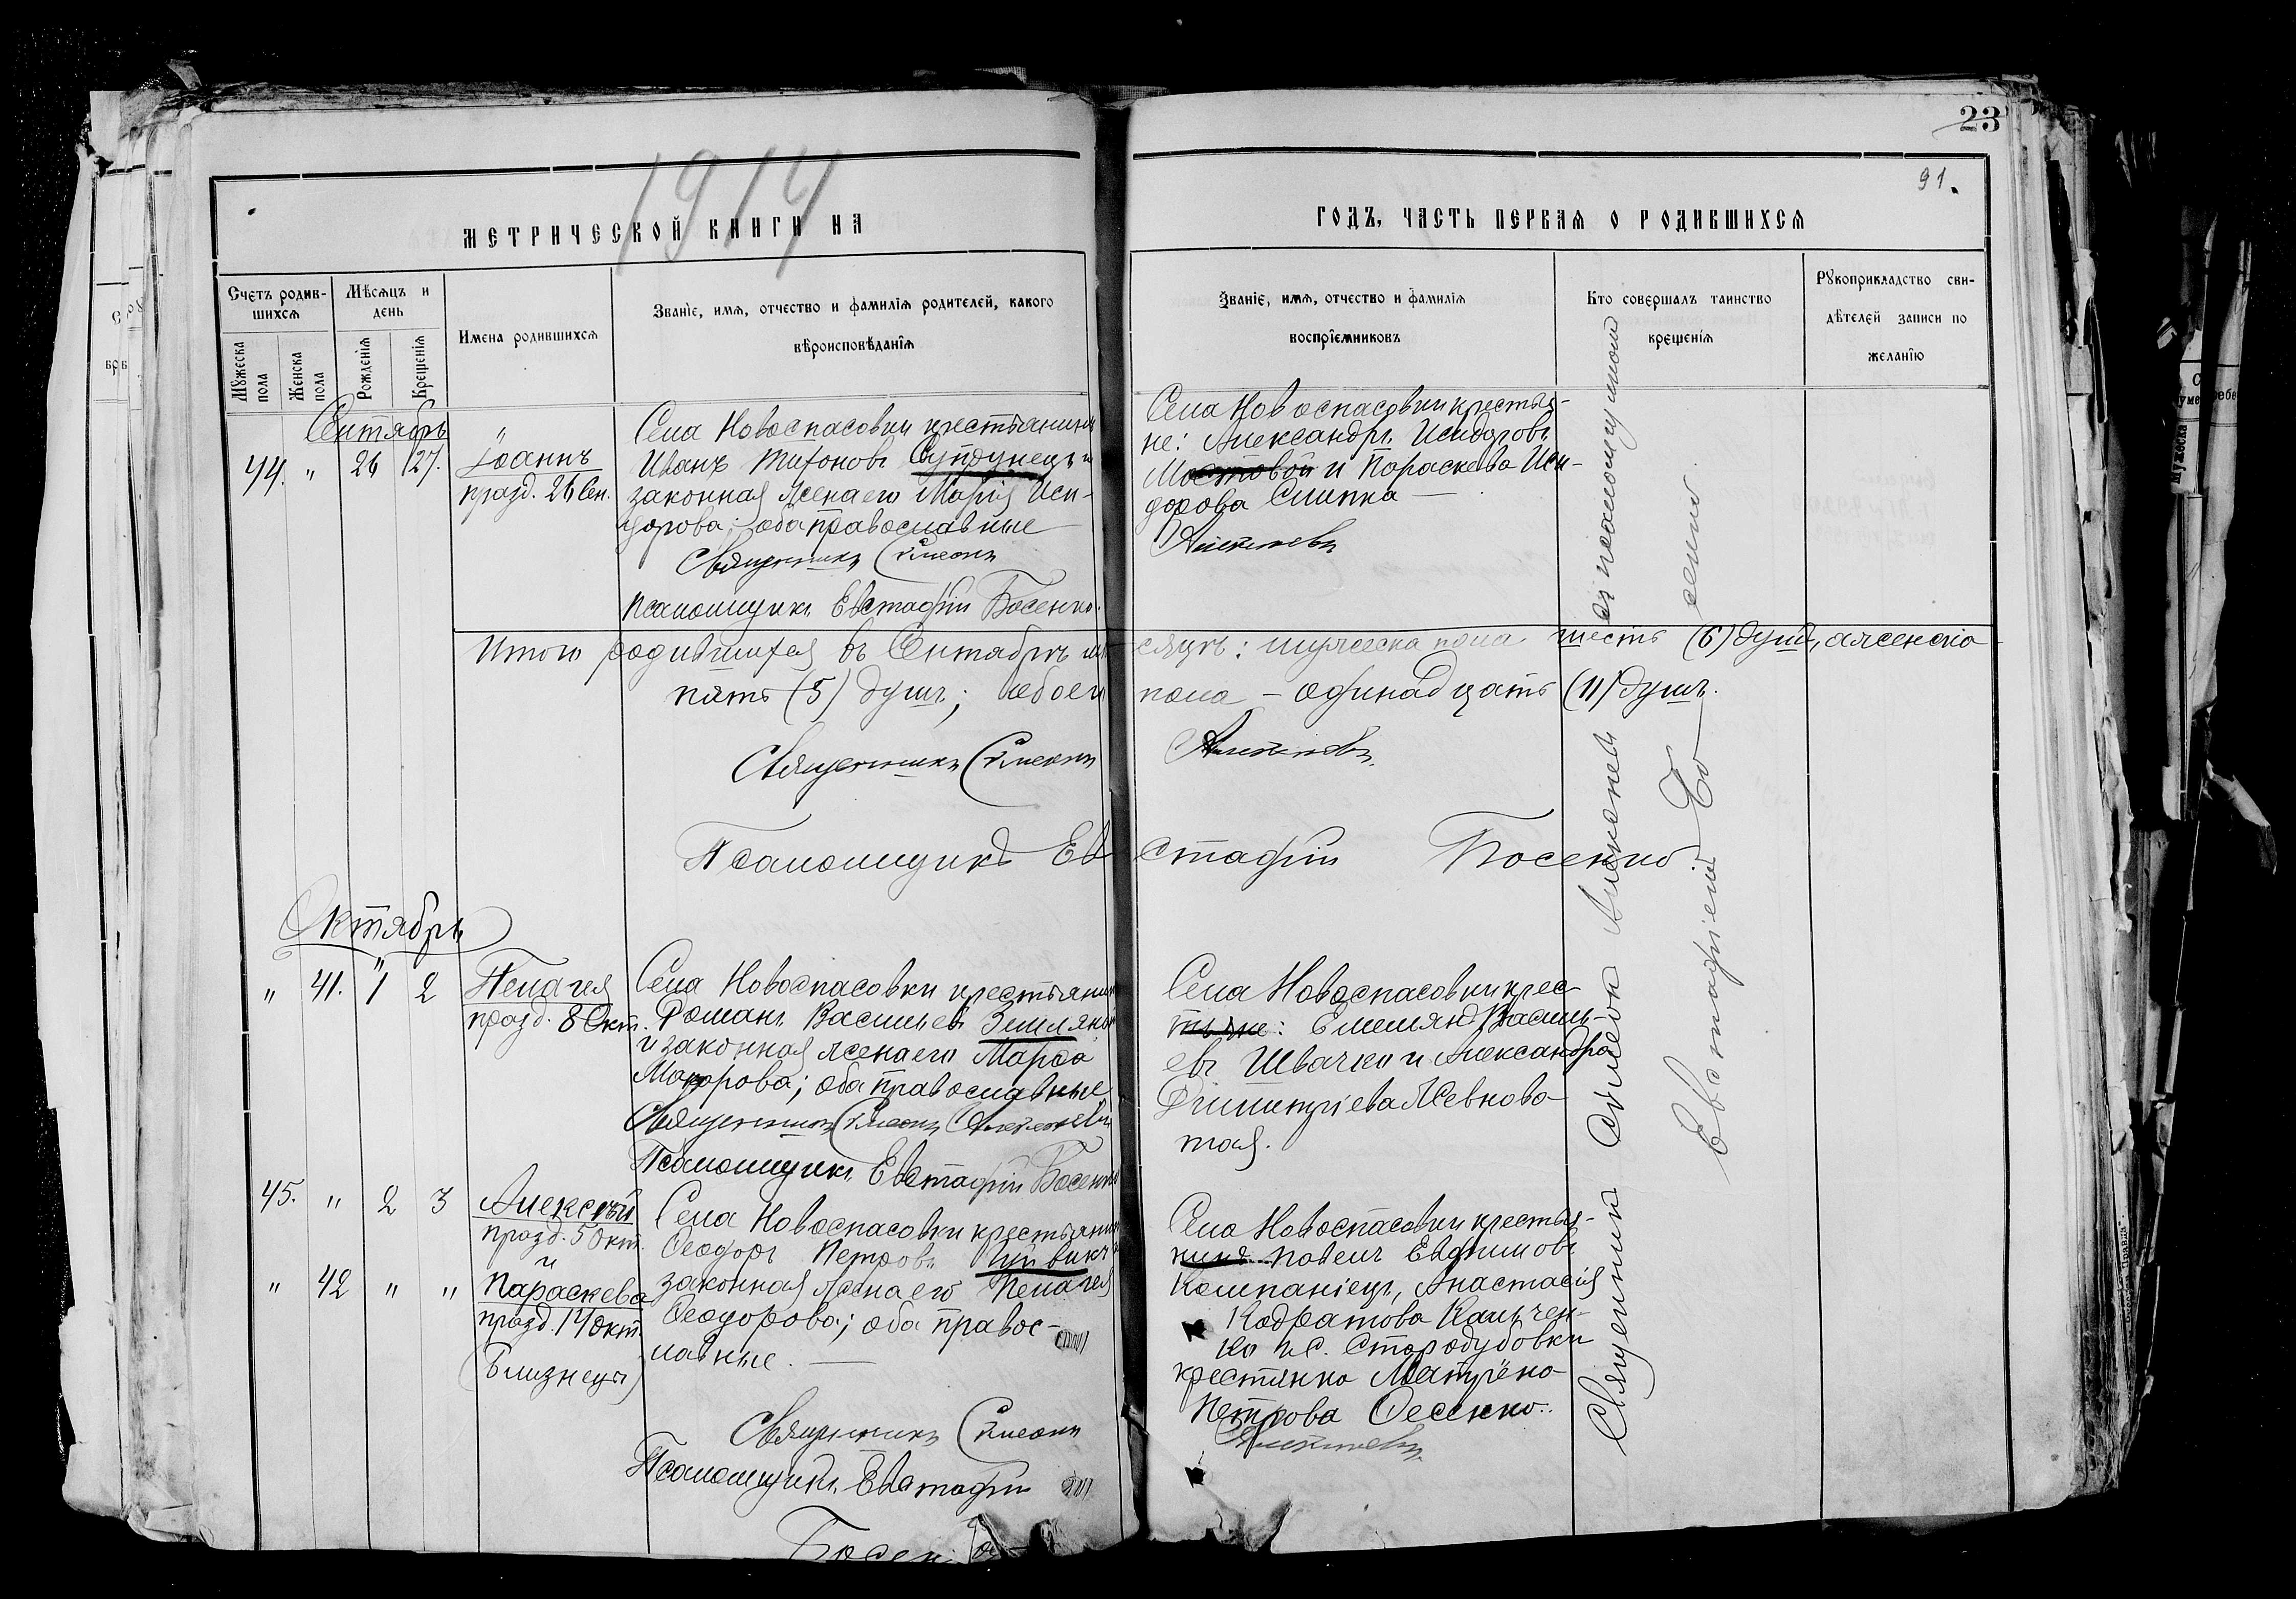 23
91.
1914
МЕТРИЧЕСКОЙ КНИГИ НА
ГОДЪ, ЧАСТЬ ПЕРВАЯ О РОДИВШИХСЯ
Счетъ родив-
шихся
Мужеска пола
Женска пола
Мѣсяцъ и
день
Рожденія
Крещенія
Имена родившихся
Званіе, имя, отчество и фамилія родителей, какого
вѣроисповѣданія
Званіе, имя, отчество и фамилія
воспріемниковъ
Кто совершалъ таинство
крещенія
Рукоприкладство сви-
дѣтелей записи по
желанію
Сентябрь
44. " 26 27.
Іоаннъ
празд. 26 Сен.
Села Новоспасовки крестьянинъ
Иванъ Тихоновъ и
законная жена его Марія Иси-
дорова; оба православные
Священникъ Симеонъ
Псаломщикъ Евстафій Босенко.
Села Новоспасовки крестья-
не: Александръ Исидоровъ
Мостовой и Параскева Иси-
дорова Слипка —
Итого родившихся въ Сентябрѣ мѣсяцѣ: мужеска пола шесть (6) душъ, а женска
пять (5) душъ; обоего пола – одинадцать (11) душъ.
Священникъ Симеонъ
Псаломщикъ Евстафій Босенко.
Октябрь
" 41. 1 2
Пелагея
празд. 8 Окт.
Села Новоспасовки крестьянинъ
Романъ Васильевъ
и законная жена его Марѳа
Макарова; оба православные
Священникъ Симеонъ
Псаломщикъ Евстафій Босенко
Села Новоспасовки крес-
тьяне: Емельянъ Василь-
евъ Швачко и Александра
Димитріева Жевнова-
тая.
45. " 2 3
Алексѣй
празд. 5 Окт.
и
" 42 " "
Параскева
празд. 14 Окт.
(Близнецы)
Села Новоспасовки крестьянинъ
Ѳеодоръ Петровъ
законная жена его Пелагея
Ѳеодорова; оба правос-
лавные. —
Священникъ Симеонъ
Псаломщикъ Евстафій
Босенко
Села Новоспасовки крестья-
нинъ Павелъ Евфимовъ
Компаніецъ, Анастасія
Кодратова Кальчен-
ко и С. Стародубовки
крестянка Матрёна
Петрова Оесенко.
Священникъ Симеонъ съ псаломщикомъ
Евстафіемъ Босенко